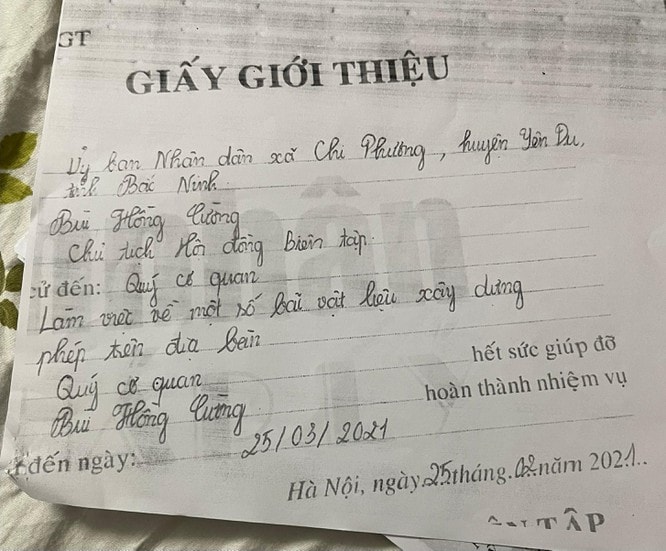 GT
GIẤY GIỚI THIỆU
Uỷ ban Nhân dân xã Chi Phương, huyện Yên Du,
tỉnh Bắc Ninh
Bùi Hồng Cường
Chủ tịch Hội đồng Biên tập
cử đến: Quý cơ quan
Làm việc về một số bãi vật liệu xây dựng
phép trên địa bàn
hết sức giúp đỡ
Quý cơ quan
hoàn thành nhiệm vụ
Bùi Hồng Cường
đến ngày: 25/03/2021
Hà Nội, ngày 25 tháng 02 năm 2021
TẬP